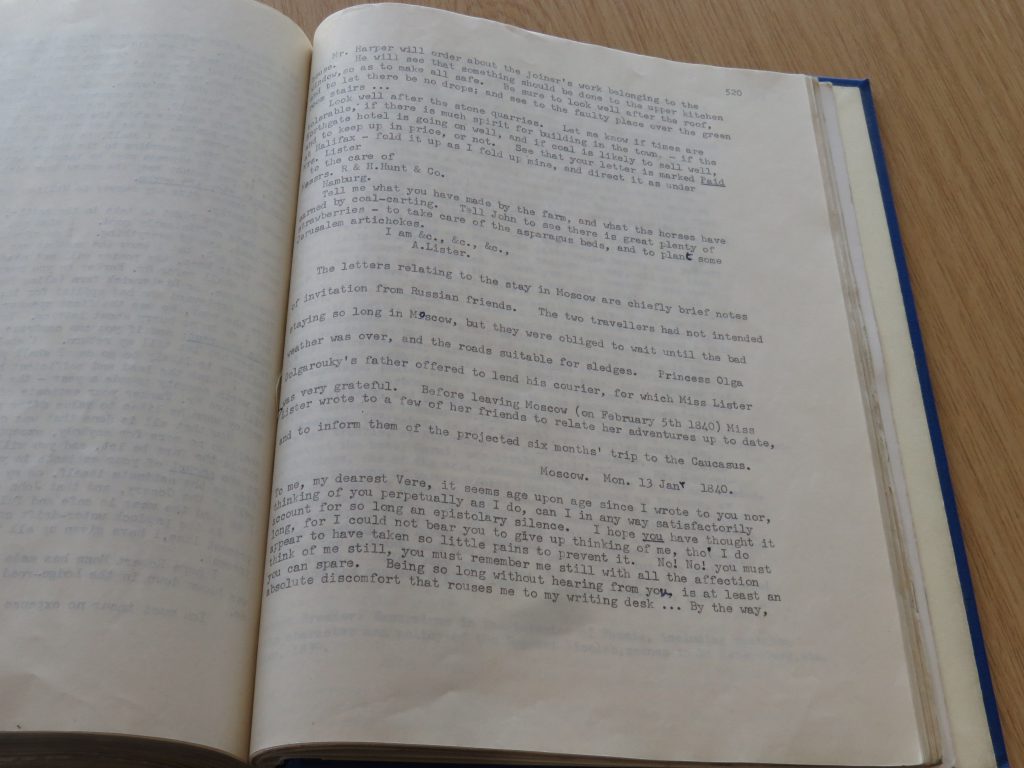 520
Mr. Harper will order about the joiner's work belonging to the
house. He will see that something should be done to the upper kitchen
window, so as to make all safe. Be sure to look well after the roof,
and to let there be no drops; and see to the faulty place over the green
room stairs ...
Look well after the stone quarries. Let me know if times are
tolerable, if there is much spirit for building in the town, - if the
Northgate hotel is going on well, and if coal is likely to sell well,
and to keep up in price, or not. See that your letter is marked Paid
Halifax - fold it up as I fold up mine, and direct it as under
Lister
to the care of
Messrs. R & H.Hunt & Co.
Hamburg.
Tell me what you have made by the farm, and what the horses have
earned by coal-carting. Tell John to see there is great plenty of
strawberries - to take care of the asparagus beds, and to plant some
Jerusalem artichokes.
I am &c., &c., &c.,
A.Lister.
The letters relating to the stay in Moscow are chiefly brief notes
of invitation from Russian friends. The two travellers had not intended
staying so long in Moscow, but they were obliged to wait until the bad
weather was over, and the roads suitable for sledges. Princess Olga
Dolgarouky's father offered to lend his courier, for which Miss Lister
was very grateful. Before leaving Moscow (on February 5th 1840) Miss
Lister wrote to a few of her friends to relate her adventures up to date,
and to inform them of the projected six months' trip to the Caucasus.
Moscow. Mon. 13 Jany 1840.
To me, my dearest Vere, it seems age upon age since I wrote to you nor,
thinking of you perpetually as I do, can I in any way satisfactorily
account for so long an epistolary silence. I hope you have thought it
long, for I could not bear you to give up thinking of me, tho' I do
appear to have taken so little pains to prevent it. No! No! you must
think of me still, you must remember me still with all the affection
you can spare. Being so long without hearing from you, is at least an
absolute discomfort that rouses me to my writing desk ... By the way,